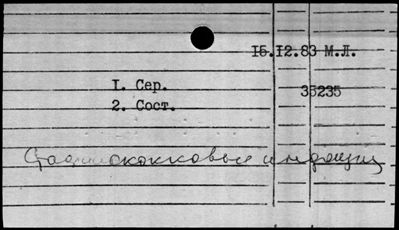 15.12.83 М.Л.
1. Сер. 35235
2. Сост.
Стафилококковые инфекции